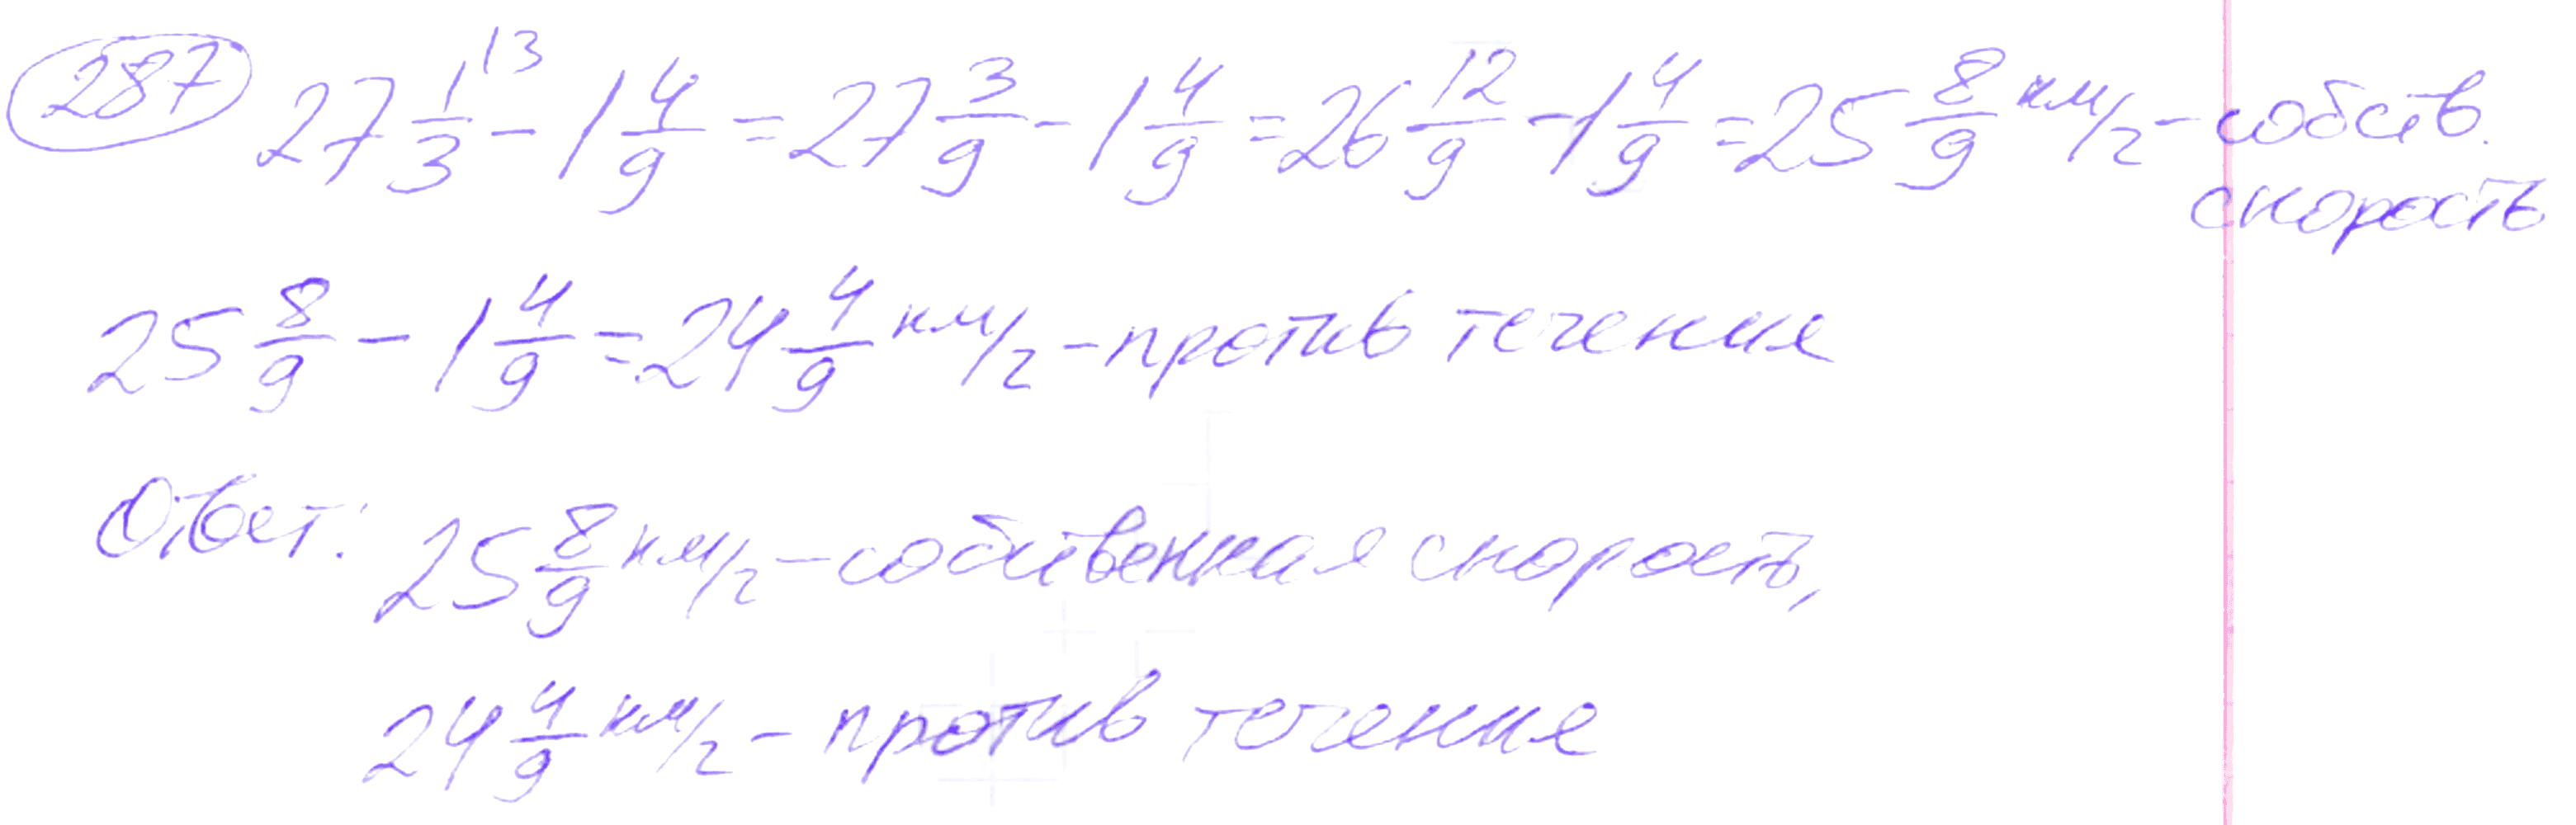 287 27 1/3 \3 - 1 4/9 = 27 3/9 - 1 4/9 = 26 12/9 - 1 4/9 = 25 8/9 км/г - собств.
скорость
25 8/9 - 1 4/9 = 24 4/9 км/г - против течения
Ответ: 25 8/9 км/г - собственная скорость,
24 4/9 км/г - против течения